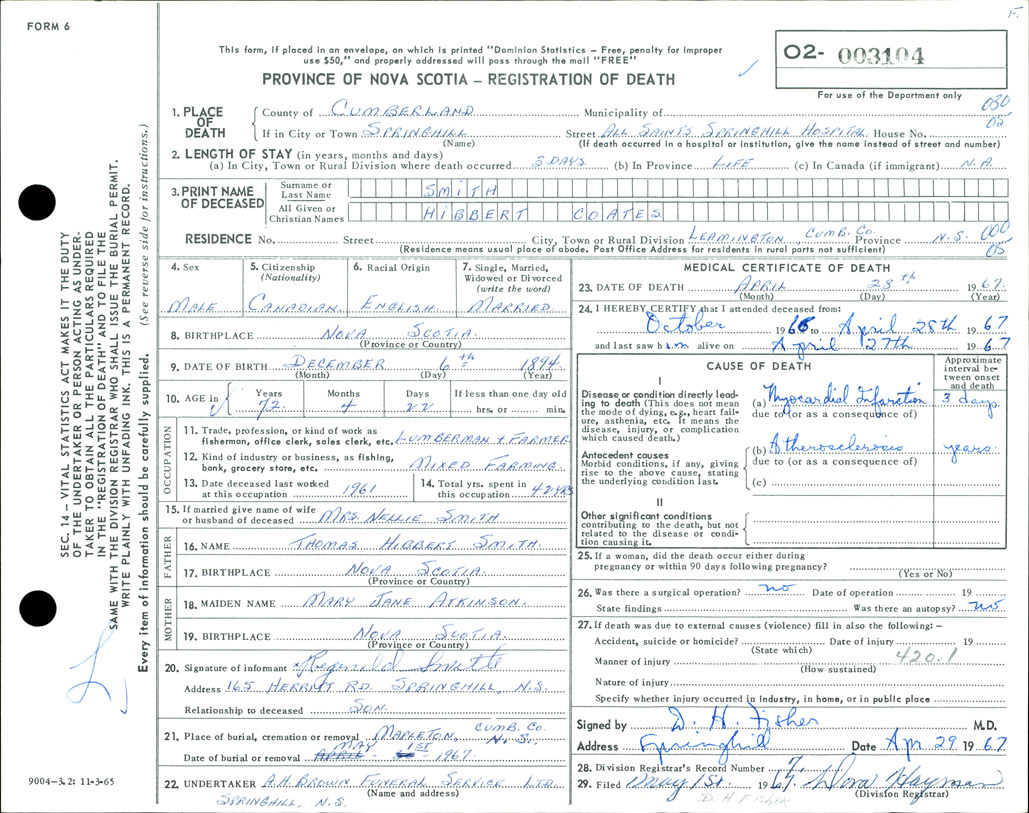 F.
FORM 6
This form, if placed in an envelope, on which is printed "Dominion Statistics – Free, penalty for improper
use $50," and properly addressed will pass through the mail "FREE"
PROVINCE OF NOVA SCOTIA – REGISTRATION OF DEATH
02- 003104
For use of the Department only
030
02
1. PLACE OF DEATH
County of CUMBERLAND Municipality of
If in City or Town SPRINGHILL Street ALL SAINTS SPRINGHILL HOSPITAL House No.
(Name) (If death occurred in a hospital or institution, give the name instead of street and number)
2. LENGTH OF STAY (in years, months and days)
(a) In City, Town or Rural Division where death occurred 3 DAYS (b) In Province LIFE (c) In Canada (if immigrant) N.A.
3. PRINT NAME OF DECEASED
Surname or Last Name SMITH
All Given or Christian Names HIBBERT COATES
000
05
RESIDENCE No. Street City, Town or Rural Division LEAMINGTON, CUMB. CO. Province N.S.
(Residence means usual place of abode. Post Office Address for residents in rural parts not sufficient)
4. Sex
MALE
5. Citizenship (Nationality)
CANADIAN
6. Racial Origin
ENGLISH
7. Single, Married, Widowed or Divorced (write the word)
MARRIED
8. BIRTHPLACE NOVA SCOTIA
(Province or Country)
9. DATE OF BIRTH DECEMBER 6th 1894
(Month) (Day) (Year)
10. AGE in Years Months Days If less than one day old
72 4 22 hrs. or min.
OCCUPATION
11. Trade, profession, or kind of work as
fisherman, office clerk, sales clerk, etc. LUMBERMAN + FARMER
12. Kind of industry or business, as fishing,
bank, grocery store, etc. MIXED FARMING
13. Date deceased last worked at this occupation 1961
14. Total yrs. spent in this occupation 42 YRS
15. If married give name of wife
or husband of deceased MRS NELLIE SMITH
FATHER
16. NAME THOMAS HIBBERT SMITH
17. BIRTHPLACE NOVA SCOTIA
(Province or Country)
MOTHER
18. MAIDEN NAME MARY JANE ATKINSON
19. BIRTHPLACE NOVA SCOTIA
(Province or Country)
20. Signature of informant Reginald Smith
Address 165 HERRITT RD. SPRINGHILL, N.S.
Relationship to deceased SON.
21. Place of burial, cremation or removal MAPLETON, CUMB. CO. N.S.
Date of burial or removal APRIL MAY 1ST 1967
22. UNDERTAKER A.H. BROWN FUNERAL SERVICE LTD.
(Name and address)
SPRINGHILL, N.S.
MEDICAL CERTIFICATE OF DEATH
23. DATE OF DEATH APRIL 28th 1967
(Month) (Day) (Year)
24. I HEREBY CERTIFY that I attended deceased from:
October 1966 to April 28th 1967
and last saw him alive on April 27th 1967
CAUSE OF DEATH
Approximate interval between onset and death
I
Disease or condition directly leading to death (This does not mean the mode of dying, e.g., heart failure, asthenia, etc. It means the disease, injury, or complication which caused death.)
(a) Myocardial Infarction 3 days
due to (or as a consequence of)
Antecedent causes
Morbid conditions, if any, giving rise to the above cause, stating the underlying condition last.
(b) Atherosclerosis years.
due to (or as a consequence of)
(c)
II
Other significant conditions
contributing to the death, but not related to the disease or condition causing it.
25. If a woman, did the death occur either during
pregnancy or within 90 days following pregnancy?
(Yes or No)
26. Was there a surgical operation? no Date of operation 19
State findings Was there an autopsy? no
27. If death was due to external causes (violence) fill in also the following: –
Accident, suicide or homicide? Date of injury 19
(State which)
Manner of injury 420.1
(How sustained)
Nature of injury
Specify whether injury occurred in industry, in home, or in public place
Signed by D. H. Fisher M.D.
Address Springhill Date Apr 29 1967
28. Division Registrar's Record Number 7
29. Filed May 1st 1967. Dora Hayman
(Division Registrar)
D. H Fisher
SEC. 14 – VITAL STATISTICS ACT MAKES IT THE DUTY
OF THE UNDERTAKER OR PERSON ACTING AS UNDER-
TAKER TO OBTAIN ALL THE PARTICULARS REQUIRED
IN THE "REGISTRATION OF DEATH" AND TO FILE THE
SAME WITH THE DIVISION REGISTRAR WHO SHALL ISSUE THE BURIAL PERMIT.
WRITE PLAINLY WITH UNFADING INK. THIS IS A PERMANENT RECORD.
Every item of information should be carefully supplied. (See reverse side for instructions.)
9004-3.2: 11-3-65